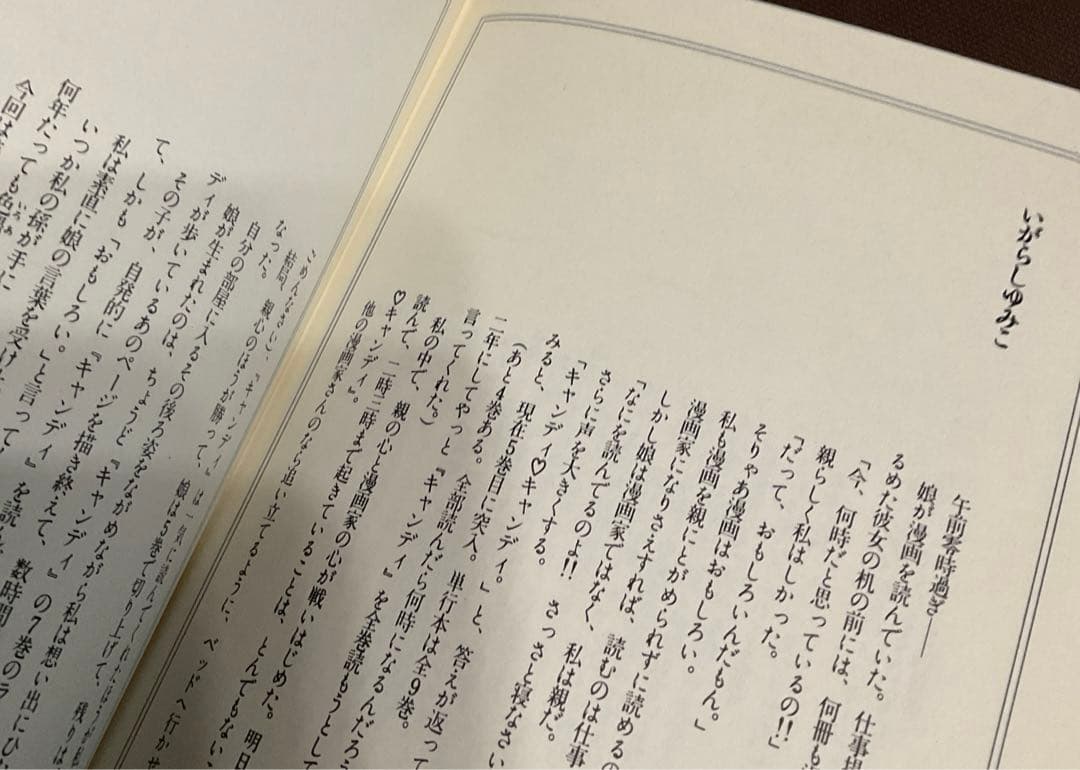 いがらしゆみこ
午前零時過ぎ――
娘が漫画を読んでいた。仕事場
るめた彼女の机の前には、何冊も
「今、何時だと思っているの!!」
親らしく私はしかった。
「だって、おもしろいんだもん。」
そりゃあ漫画はおもしろい。
私も漫画を親にとがめられずに読めるの
漫画家になりさえすれば、読むのは仕事
しかし娘は漫画家ではなく、私は親だ。
「なにを読んでるのよ!!さっさと寝なさい
さらに声を大きくする。
「キャンディ♡キャンディ。」と、答えが返って
みると、
(あと4巻ある。単行本は全9巻。
現在5巻目に突入。
二年にしてやっと全部読んだら何時になるんだろう
言ってくれた。)
私の中で、親の心と漫画家の心が戦いはじめた。明日
読んで、二時三時まで起きていることは、とんでもないこ
♡キャンディ』。
他の漫画家さんのなら追い立てるように、ベッドへ行かせ
ごめんなさい、『キャンディ』は一気に読んでくれたほうが
結局、親心のほうが勝って、娘は5巻で切り上げて、残りは
なった。
自分の部屋に入るその後ろ姿をながめながら私は想い出にひ
娘が生まれたのは、ちょうど『キャンディ』の7巻のラ
ディが歩いているあのページを描き終えて、数時間
て、その子が、自発的に『キャンディ』を読ん
しかも「おもしろい。」と言って
私は素直に娘の言葉を受け
いつか私の孫が手に
何年たっても色
今回は